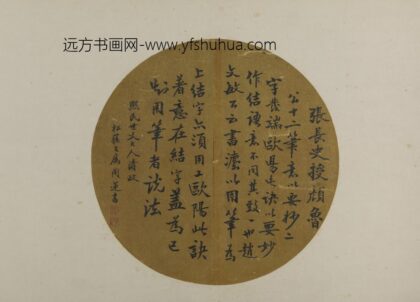 远方书画网-www.yfshuhua.com
張長史授顏魯
公十二筆意以要妙二
字發端歐陽之訣以要妙
作結謹意不同其致一也趙
文敏公云書法以用筆為
上結字亦須用工歐陽此訣
著意在結字蓋為已
知用筆者說法
熙民世丈大人清政